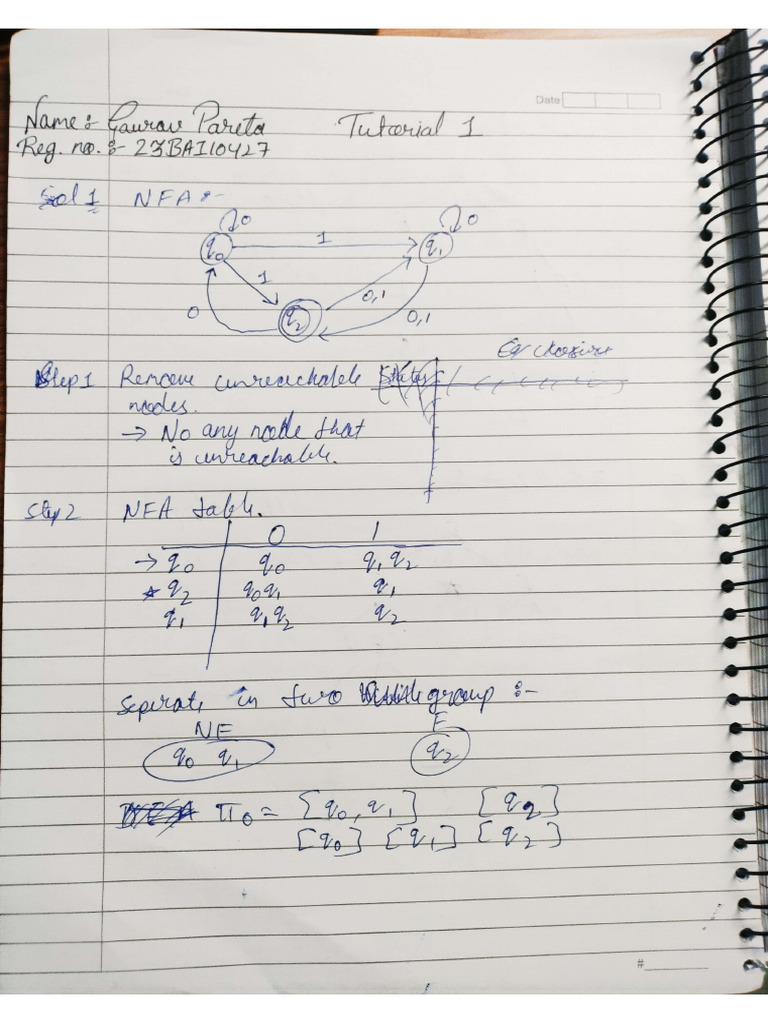 Date
Name :- Gaurav Pareta Tutorial 1
Reg. no. :- 23BAI10427
Sol 1 NFA :-
0 0
q0 1 q1
1
0 q2 0,1 0,1
Step 1 Remove unreachable
nodes.
→ No any node that
is unreachable.
Step 2 NFA table.
0 1
→ q0 q0 q1 q2
* q2 q0 q1 q1
q1 q1 q2 q2
Seperate in two group :-
NF F
q0 q1 q2
π0 = [q0, q1] [q2]
[q0] [q1] [q2]
#